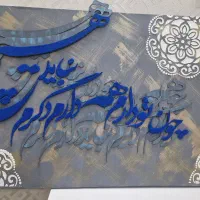 چون تو دارم همه دارم دگرم
هیچ نباید